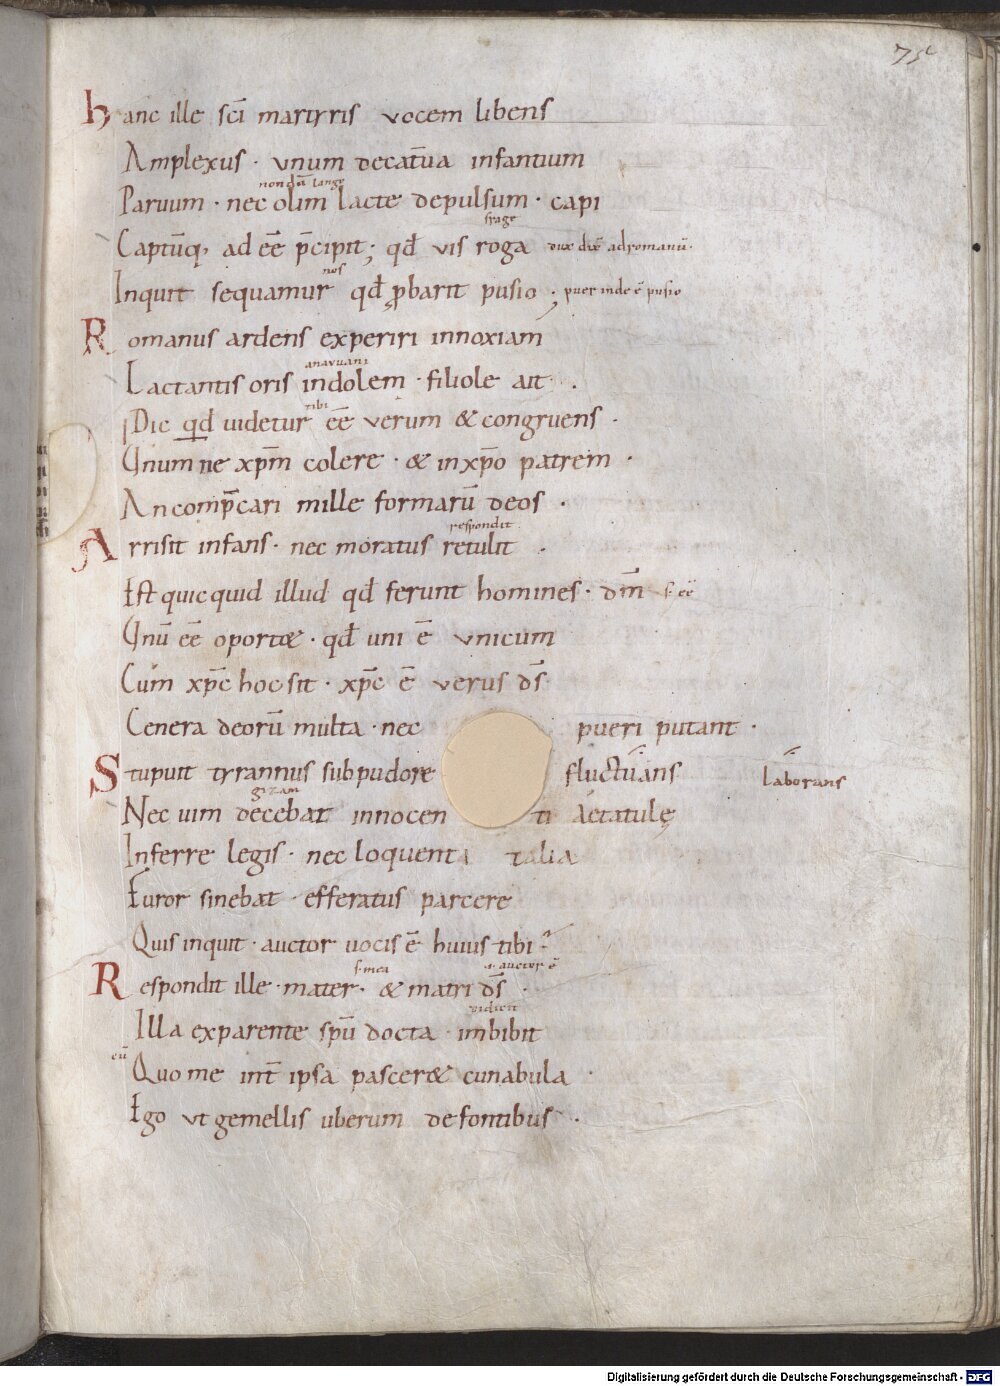 75
hanc ille sc̄i martyris vocem libens
Amplexus · vnum decatū́a infantium
nondū lange
Paruum · nec olim lacte depulsum · capi
frage
Captūq; ad eē p̄cipit; qđ vis roga
Inquit sequamur qđ ꝓbarit pusio ; puer inde ē pusio
nos
Romanus ardens experiri innoxiam
Lactantis oris indolem · filiole ait ·
tibi
Dic qđ uidetur eē verum & congruens ·
Vnum ne xp̄m colere · & in xp̄o patrem ·
An comp̄cari mille formarū deos ·
respondit
Arrisit infans · nec moratus retulit ·
Est quicquid illud qđ ferunt homines · dm̄ s· eē
Vnū eē oportet · qđ uni ē vnicum
Cum xp̄c hoc sit · xp̄c ē verus ds̄
Genera deorū multa · nec pueri putant ·
Stupuit tyrannus sub pudore fluctuans laborans
Nec uim decebat innocenti aetatulę
Inferre legis · nec loquenti talia
Furor sinebat · efferatus parcere
Quis inquit · auctor uocis ē huius tibi ?
s· mea auctor ē
Respondit ille · mater · & matri ds̄ ·
Illa ex parente spū docta · imbibit
eū
Quo me int̄ ipsa pasceret cunabula ·
Ego vt gemellis uberum de fontibus ·
Digitalisierung gefördert durch die Deutsche Forschungsgemeinschaft - DFG